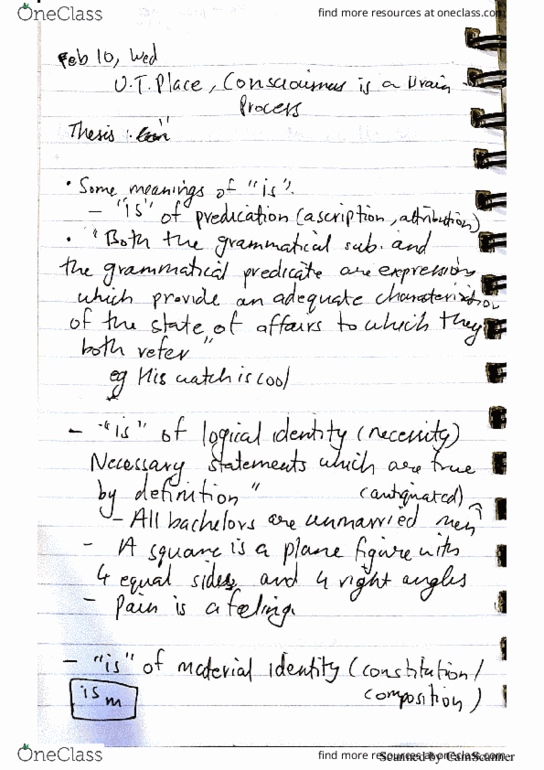 OneClass
find more resources at oneclass.com
Feb 10, Wed
U.T. Place, Consciousness is a Brain
Process
Thesis :
• Some meanings of "is".
- "IS" of predication (ascription, attribution)
• "Both the grammatical sub. and
the grammatical predicate are expressions
which provide an adequate characterization
of the state of affairs to which they
both refer"
eg His watch is cool
- "is" of logical identity (necessity)
Necessary statements which are true
by definition"
(antiquated)
- All bachelors are unmarried men
- A square is a plane figure with
4 equal sides and 4 right angles
- Pain is a feeling.
- "is" of material identity (constitution/
composition)
is m
OneClass
find more resources at oneclass.com
Scanned by CamScanner